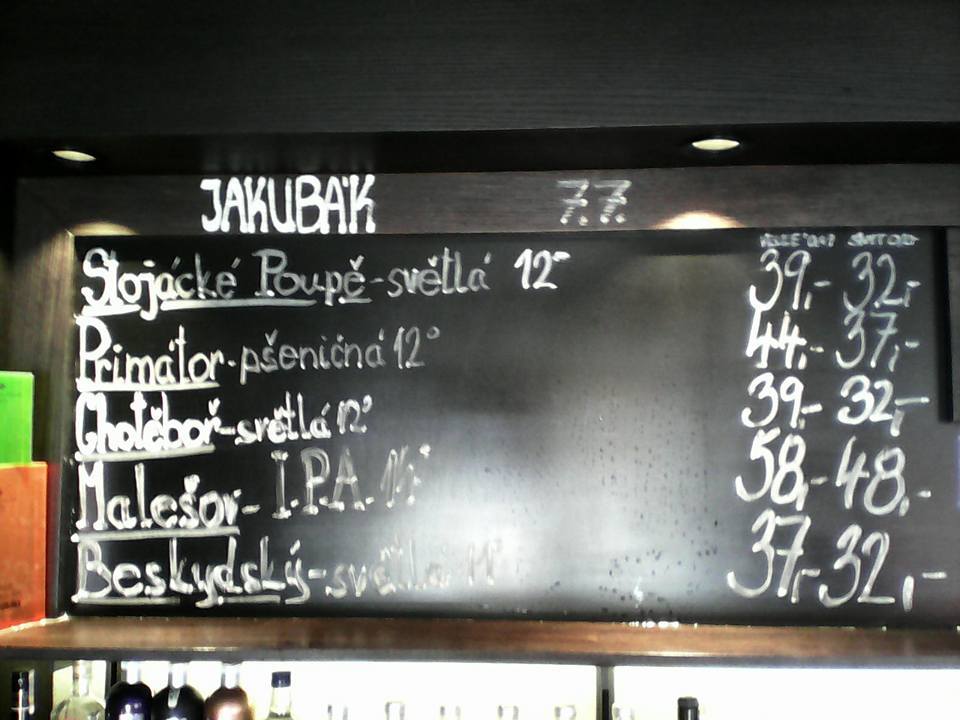 JAKUBÁK 7.7.
Slojácké Poupě-světlá 12° 39,- 32,-
Primátor-pšeničná 12° 44,- 37,-
Chotěboř-světlá 12° 39,- 32,-
Malešov- I.P.A. 14° 58,- 48,-
Beskydský-světlá 11° 37,- 32,-